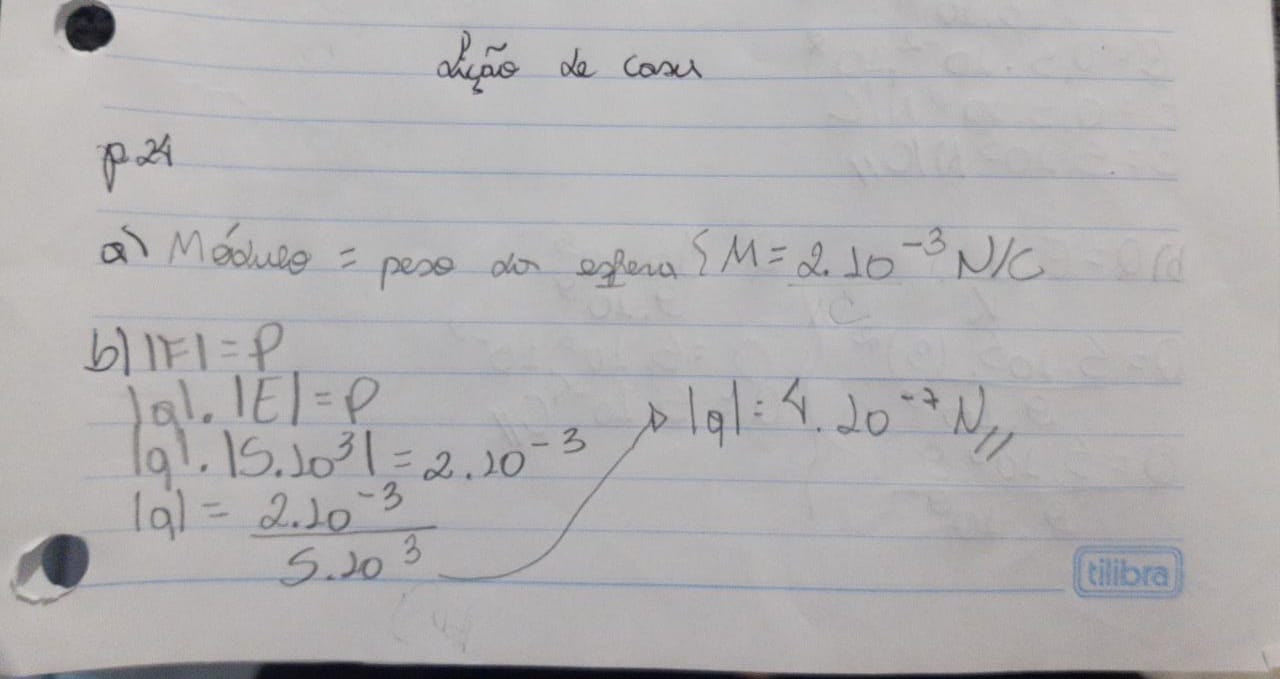 Lição de casa
p.24
a) Módulo = peso da esfera { M = 2.10⁻³ N/C
b) |F| = P
|q|. |E| = P
|q|. |5.10³| = 2.10⁻³
|q| = 2.10⁻³ / 5.10³
|q| = 4.10⁻⁷ N//
tilibra